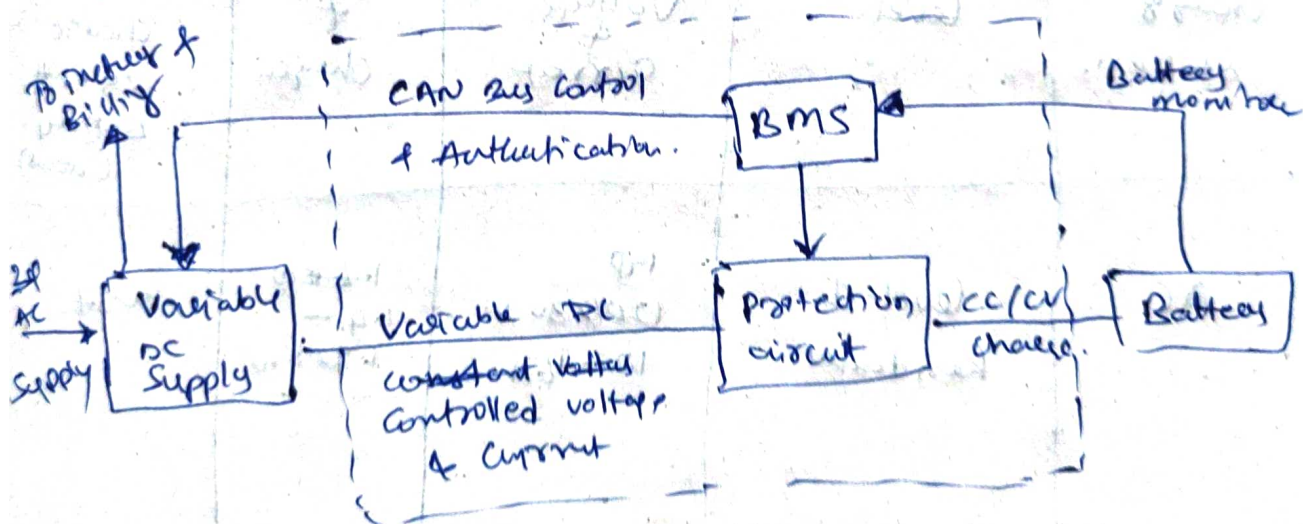 To meter &
Billing
CAN Bus Control
& Authentication.
BMS
Battery
monitor
3φ
AC
Supply
Variable
DC
Supply
Variable DC
constant voltage
Controlled voltage
& Current
protection
circuit
CC/CV
charge.
Battery